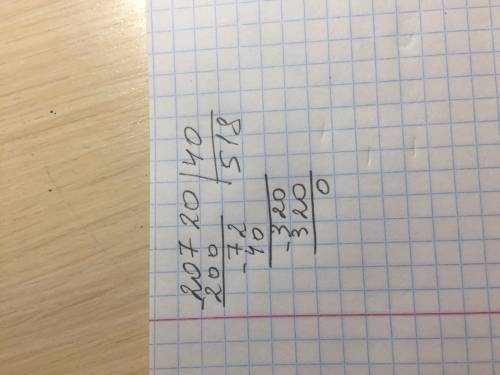 -20720 | 40
200 | 518
-72
40
-320
320
0